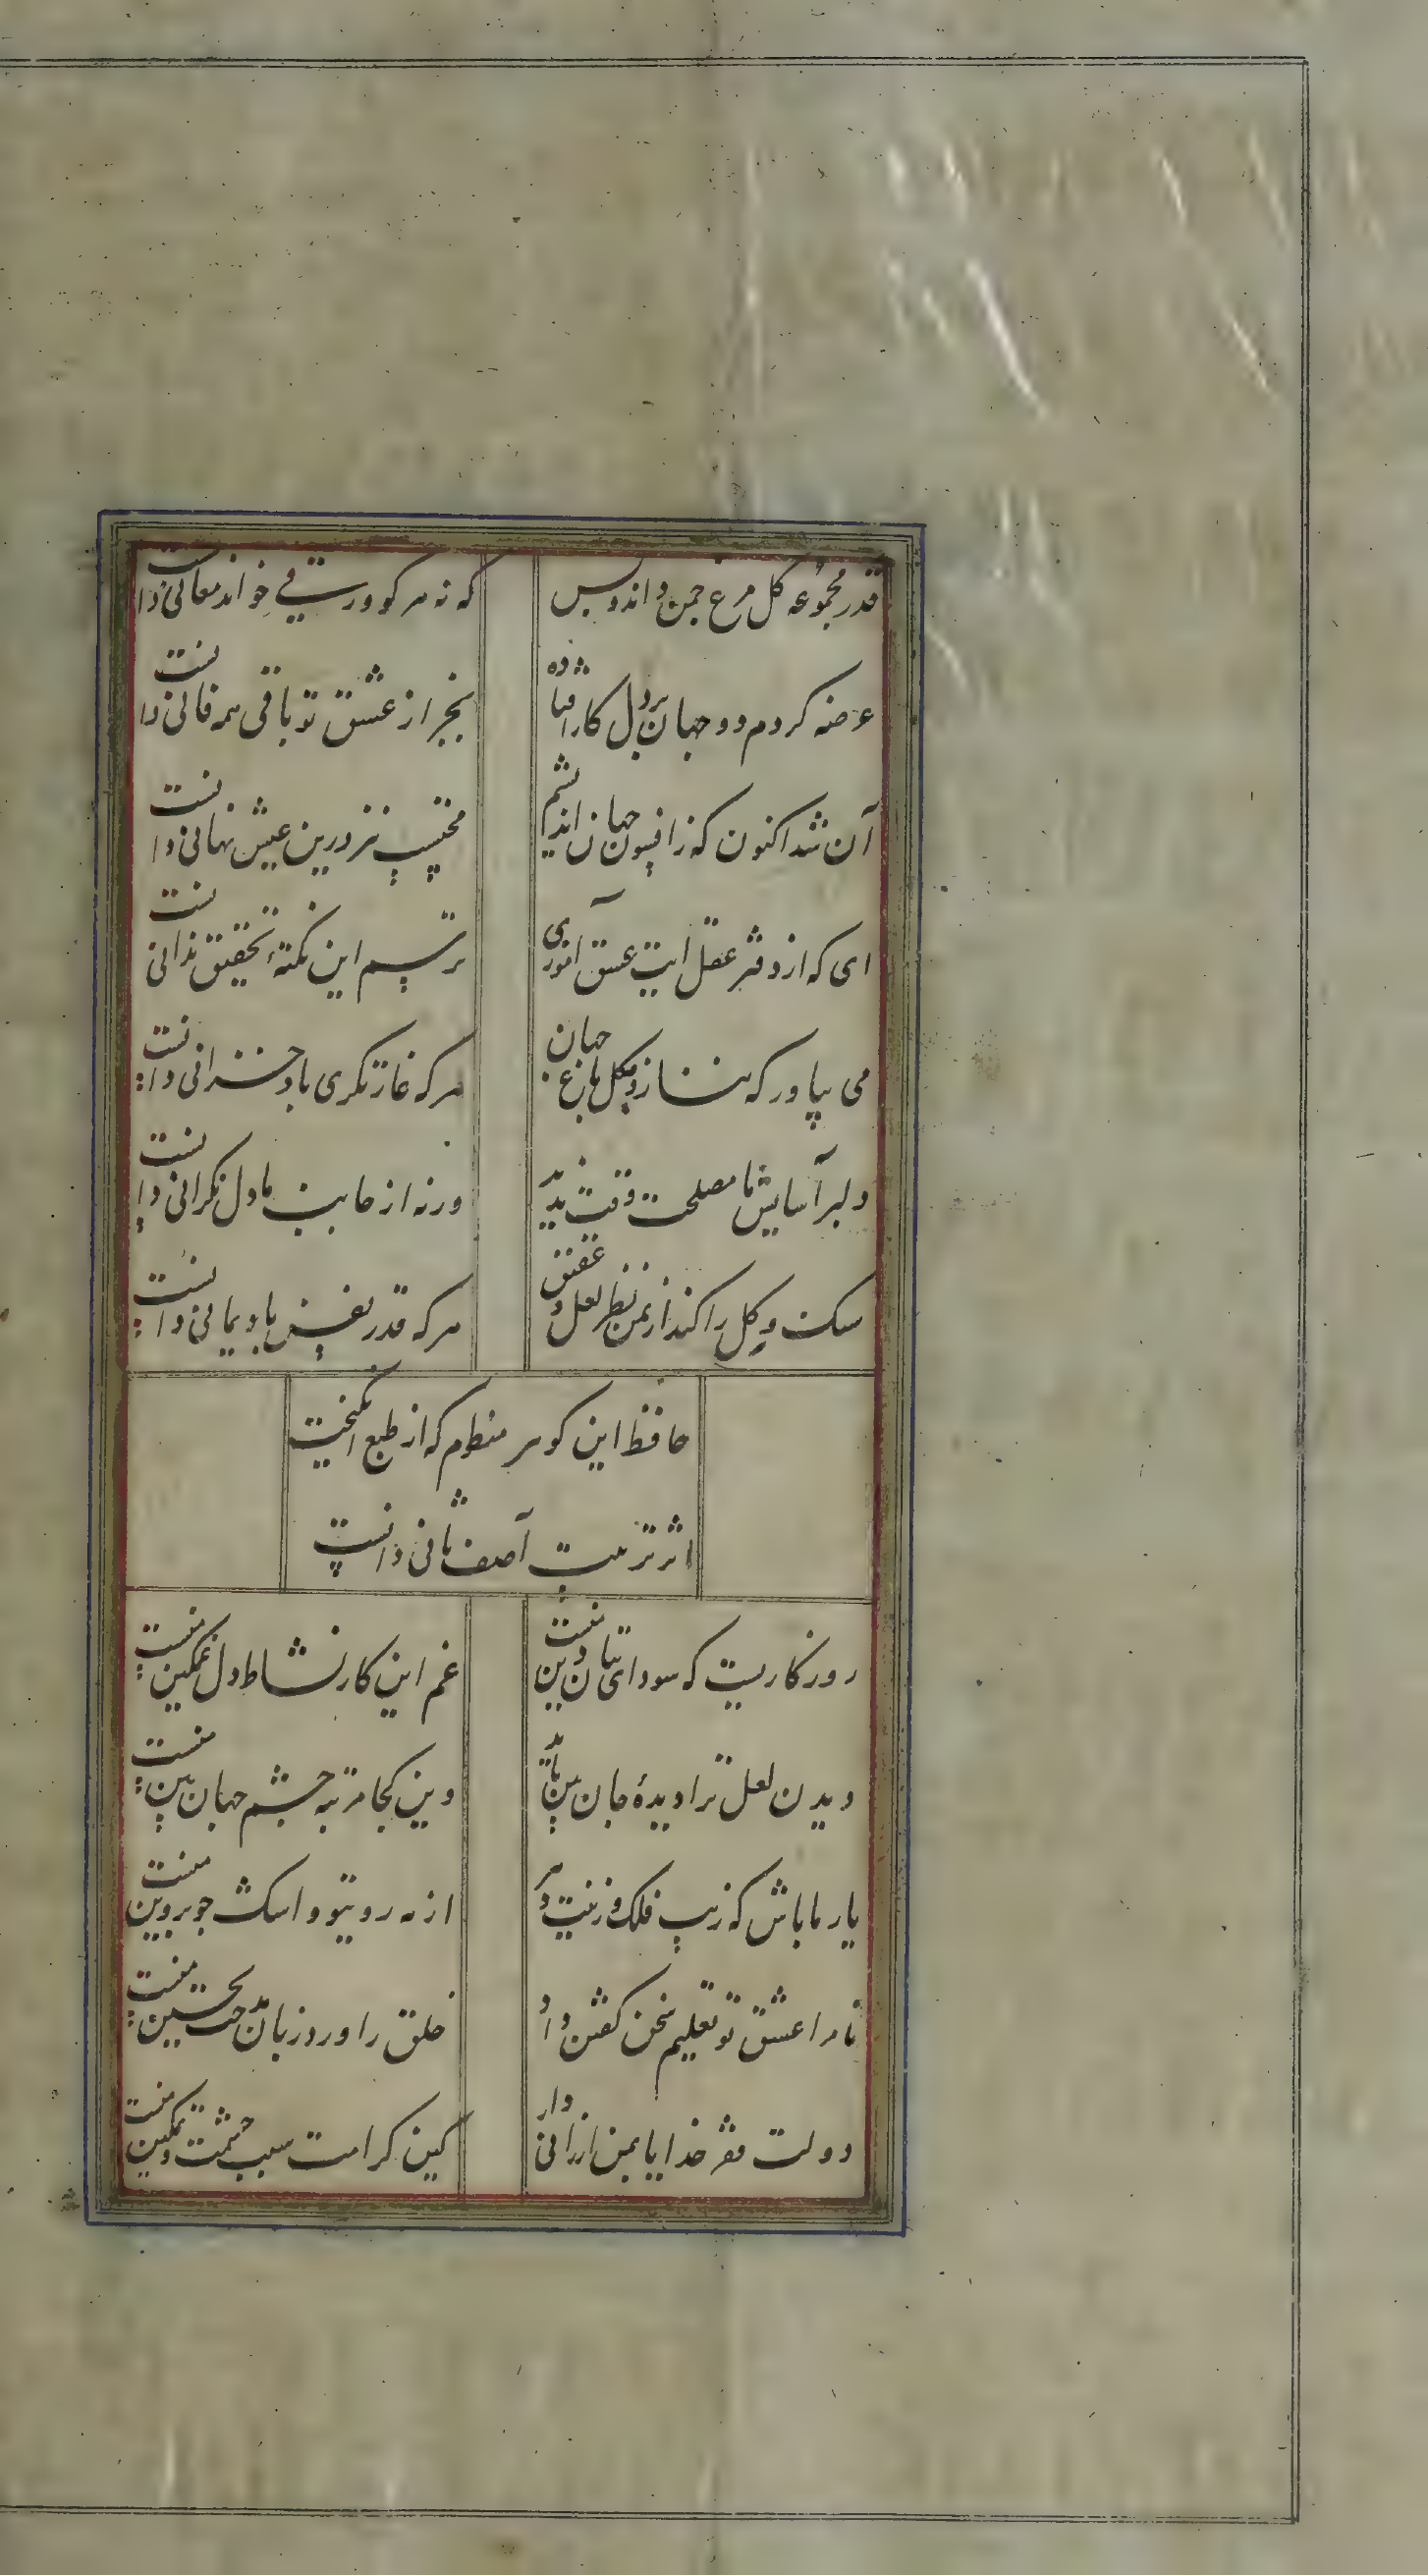 قدر مجموعه کل مرغ چمن داند و بس
که نه هر کو ورقی خواند معانی دانست
عرضه کردم دو جهان بر دل کار افتاده
بجز از عشق تو باقی همه فانی دانست
آن شد اکنون که ز افسون جهان اندیشم
محتسب نیز درین عیش نهانی دانست
ای که از دفتر عقل آیت عشق آموزی
ترسم این نکتهٔ تحقیق ندانی دانست
می بیاور که ننازد بکل باغ جهان
هر که غارتکری باد خزانی دانست
دلبر آسایش ما مصلحت وقت ندید
ورنه از جانب ما دل نکرانی دانست
سنک و کل را کند از یمن نظر لعل و عقیق
هر که قدر نفس باد یمانی دانست
حافظ این کوهر منظوم که از طبع انکیخت
اثر تربیت آصف ثانی دانست
روزکاریست که سودای بتان دین منست
غم این کار نشاط دل غمکین منست
دیدن لعل ترا دیدهٔ جان بین باید
وین کجا مرتبه چشم جهان بین منست
یار ما باش که زیب فلک و زینت دهر
از مه روی تو و اشک چو پروین منست
تا مرا عشق تو تعلیم سخن کفتن داد
خلق را ورد زبان مدحت و تحسین منست
دولت فقر خدایا بمن ارزانی دار
کین کرامت سبب حشمت و تمکین منست